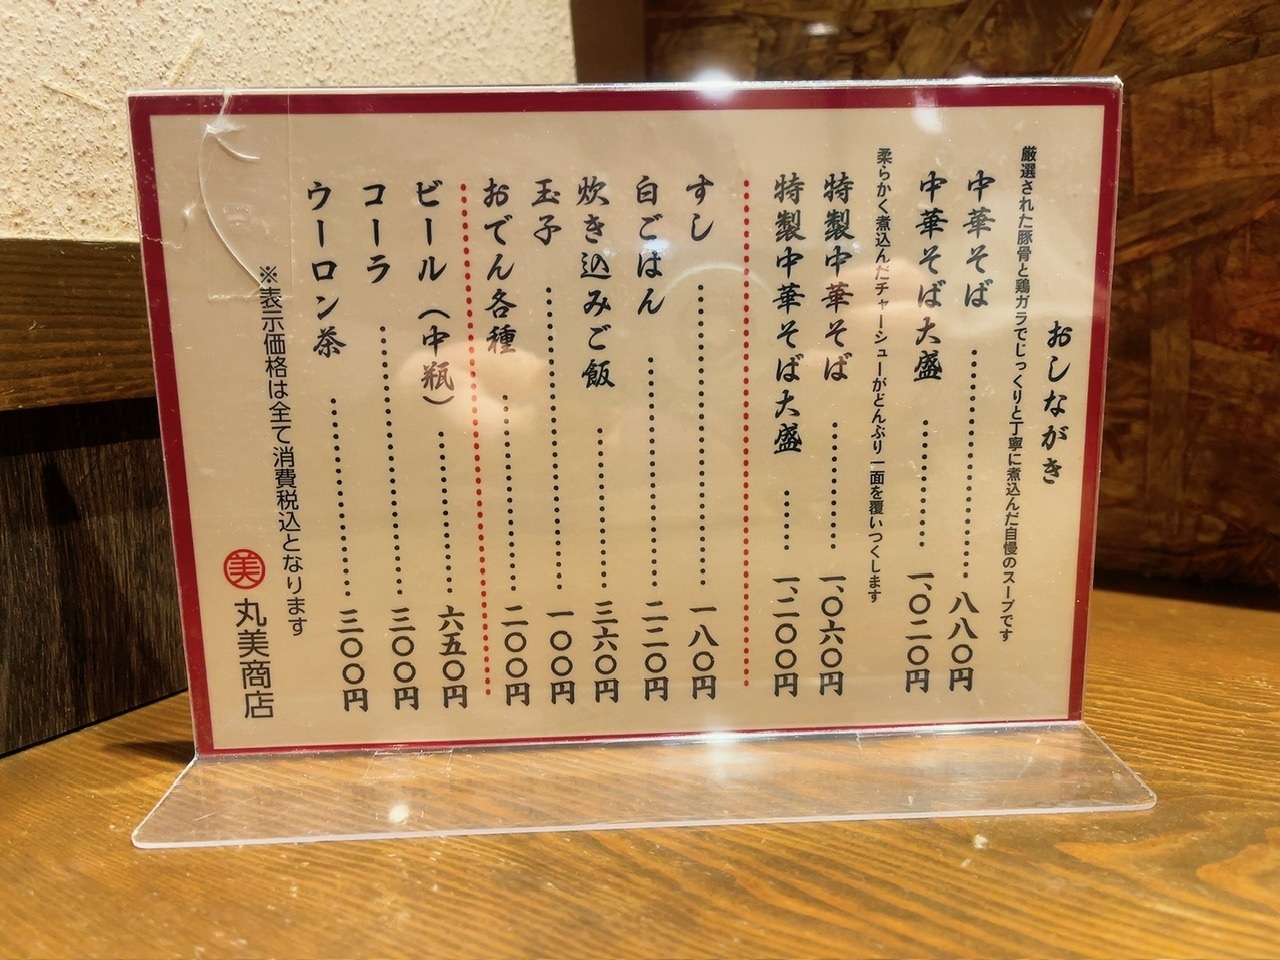 おしながき
厳選された豚骨と鶏ガラでじっくりと丁寧に煮込んだ自慢のスープです
中華そば………八八〇円
中華そば大盛………一、〇二〇円
柔らかく煮込んだチャーシューがどんぶり一面を覆いつくします
特製中華そば………一、〇六〇円
特製中華そば大盛………一、二〇〇円
すし………一八〇円
白ごはん………二二〇円
炊き込みご飯………三六〇円
玉子………一〇〇円
おでん各種………二〇〇円
ビール（中瓶）………六五〇円
コーラ………三〇〇円
ウーロン茶………三〇〇円
※表示価格は全て消費税込となります
美 丸美商店